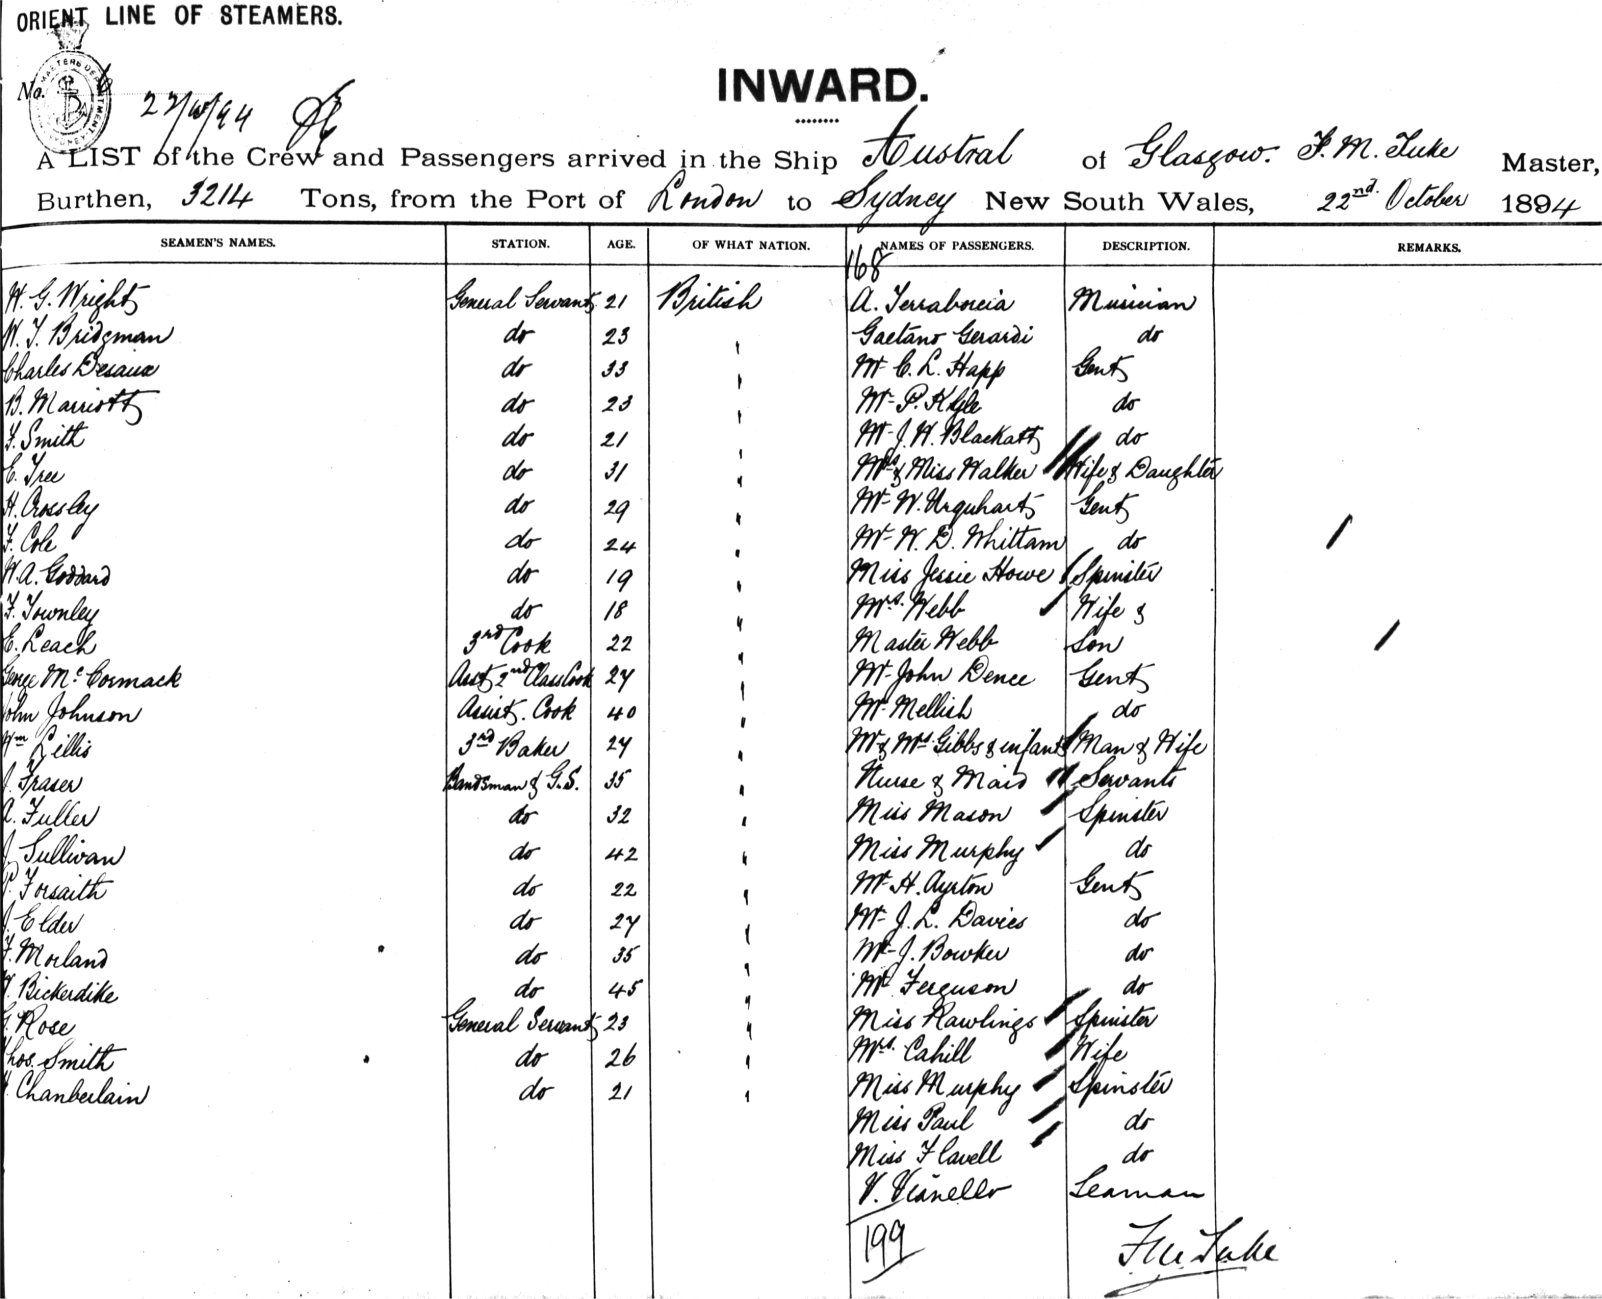 ORIENT LINE OF STEAMERS.
No.
22/10/94
INWARD.
A LIST of the Crew and Passengers arrived in the Ship Austral of Glasgow. F. M. Tuke Master,
Burthen, 3214 Tons, from the Port of London to Sydney New South Wales, 22nd October 1894
SEAMEN'S NAMES. STATION. AGE. OF WHAT NATION. NAMES OF PASSENGERS. DESCRIPTION. REMARKS.
168
H. G. Wright General Servant 21 British A. Terraborcia Musician
W. T. Bridgman do 23 " Gaetano Gerardi do
Charles Desaux do 33 " Mr C. L. Happ Gent
B. Marriott do 23 " Mr P. Kyle do
F. Smith do 21 " Mr J. W. Blackatt do
E. Tree do 31 " Mrs & Miss Walker Wife & Daughter
H. Crossley do 29 " Mr W. Urquhart Gent
F. Cole do 24 " Mr W. D. Whittam do
W. A. Goddard do 19 " Miss Jessie Howe Spinster
F. Townley do 18 " Mrs. Webb Wife &
E. Leach 3rd Cook 22 " Master Webb Son
George McCormack Asst 2nd Class Cook 27 " Mr John Dence Gent
John Johnson Assist. Cook 40 " Mr Mellish do
Wm Lillis 3rd Baker 27 " Mr & Mrs Gibbs & infant Man & Wife
J. Fraser Bandsman & G.S. 35 " Nurse & Maid Servants
A. Fuller do 32 " Miss Mason Spinster
J. Sullivan do 42 " Miss Murphy do
P. Forsaith do 22 " Mr H. Ayrton Gent
J. Elder do 27 " Mr J. L. Davies do
F. Morland do 35 " Mr J. Bowker do
Bickerdike do 45 " Mr Ferguson do
G. Rose General Servant 23 " Miss Rawlings Spinster
Thos. Smith do 26 " Mrs. Cahill Wife
Chanberlain do 21 " Miss Murphy Spinster
Miss Paul do
Miss Flavell do
V. Vianello Seaman
199
F. M. Tuke